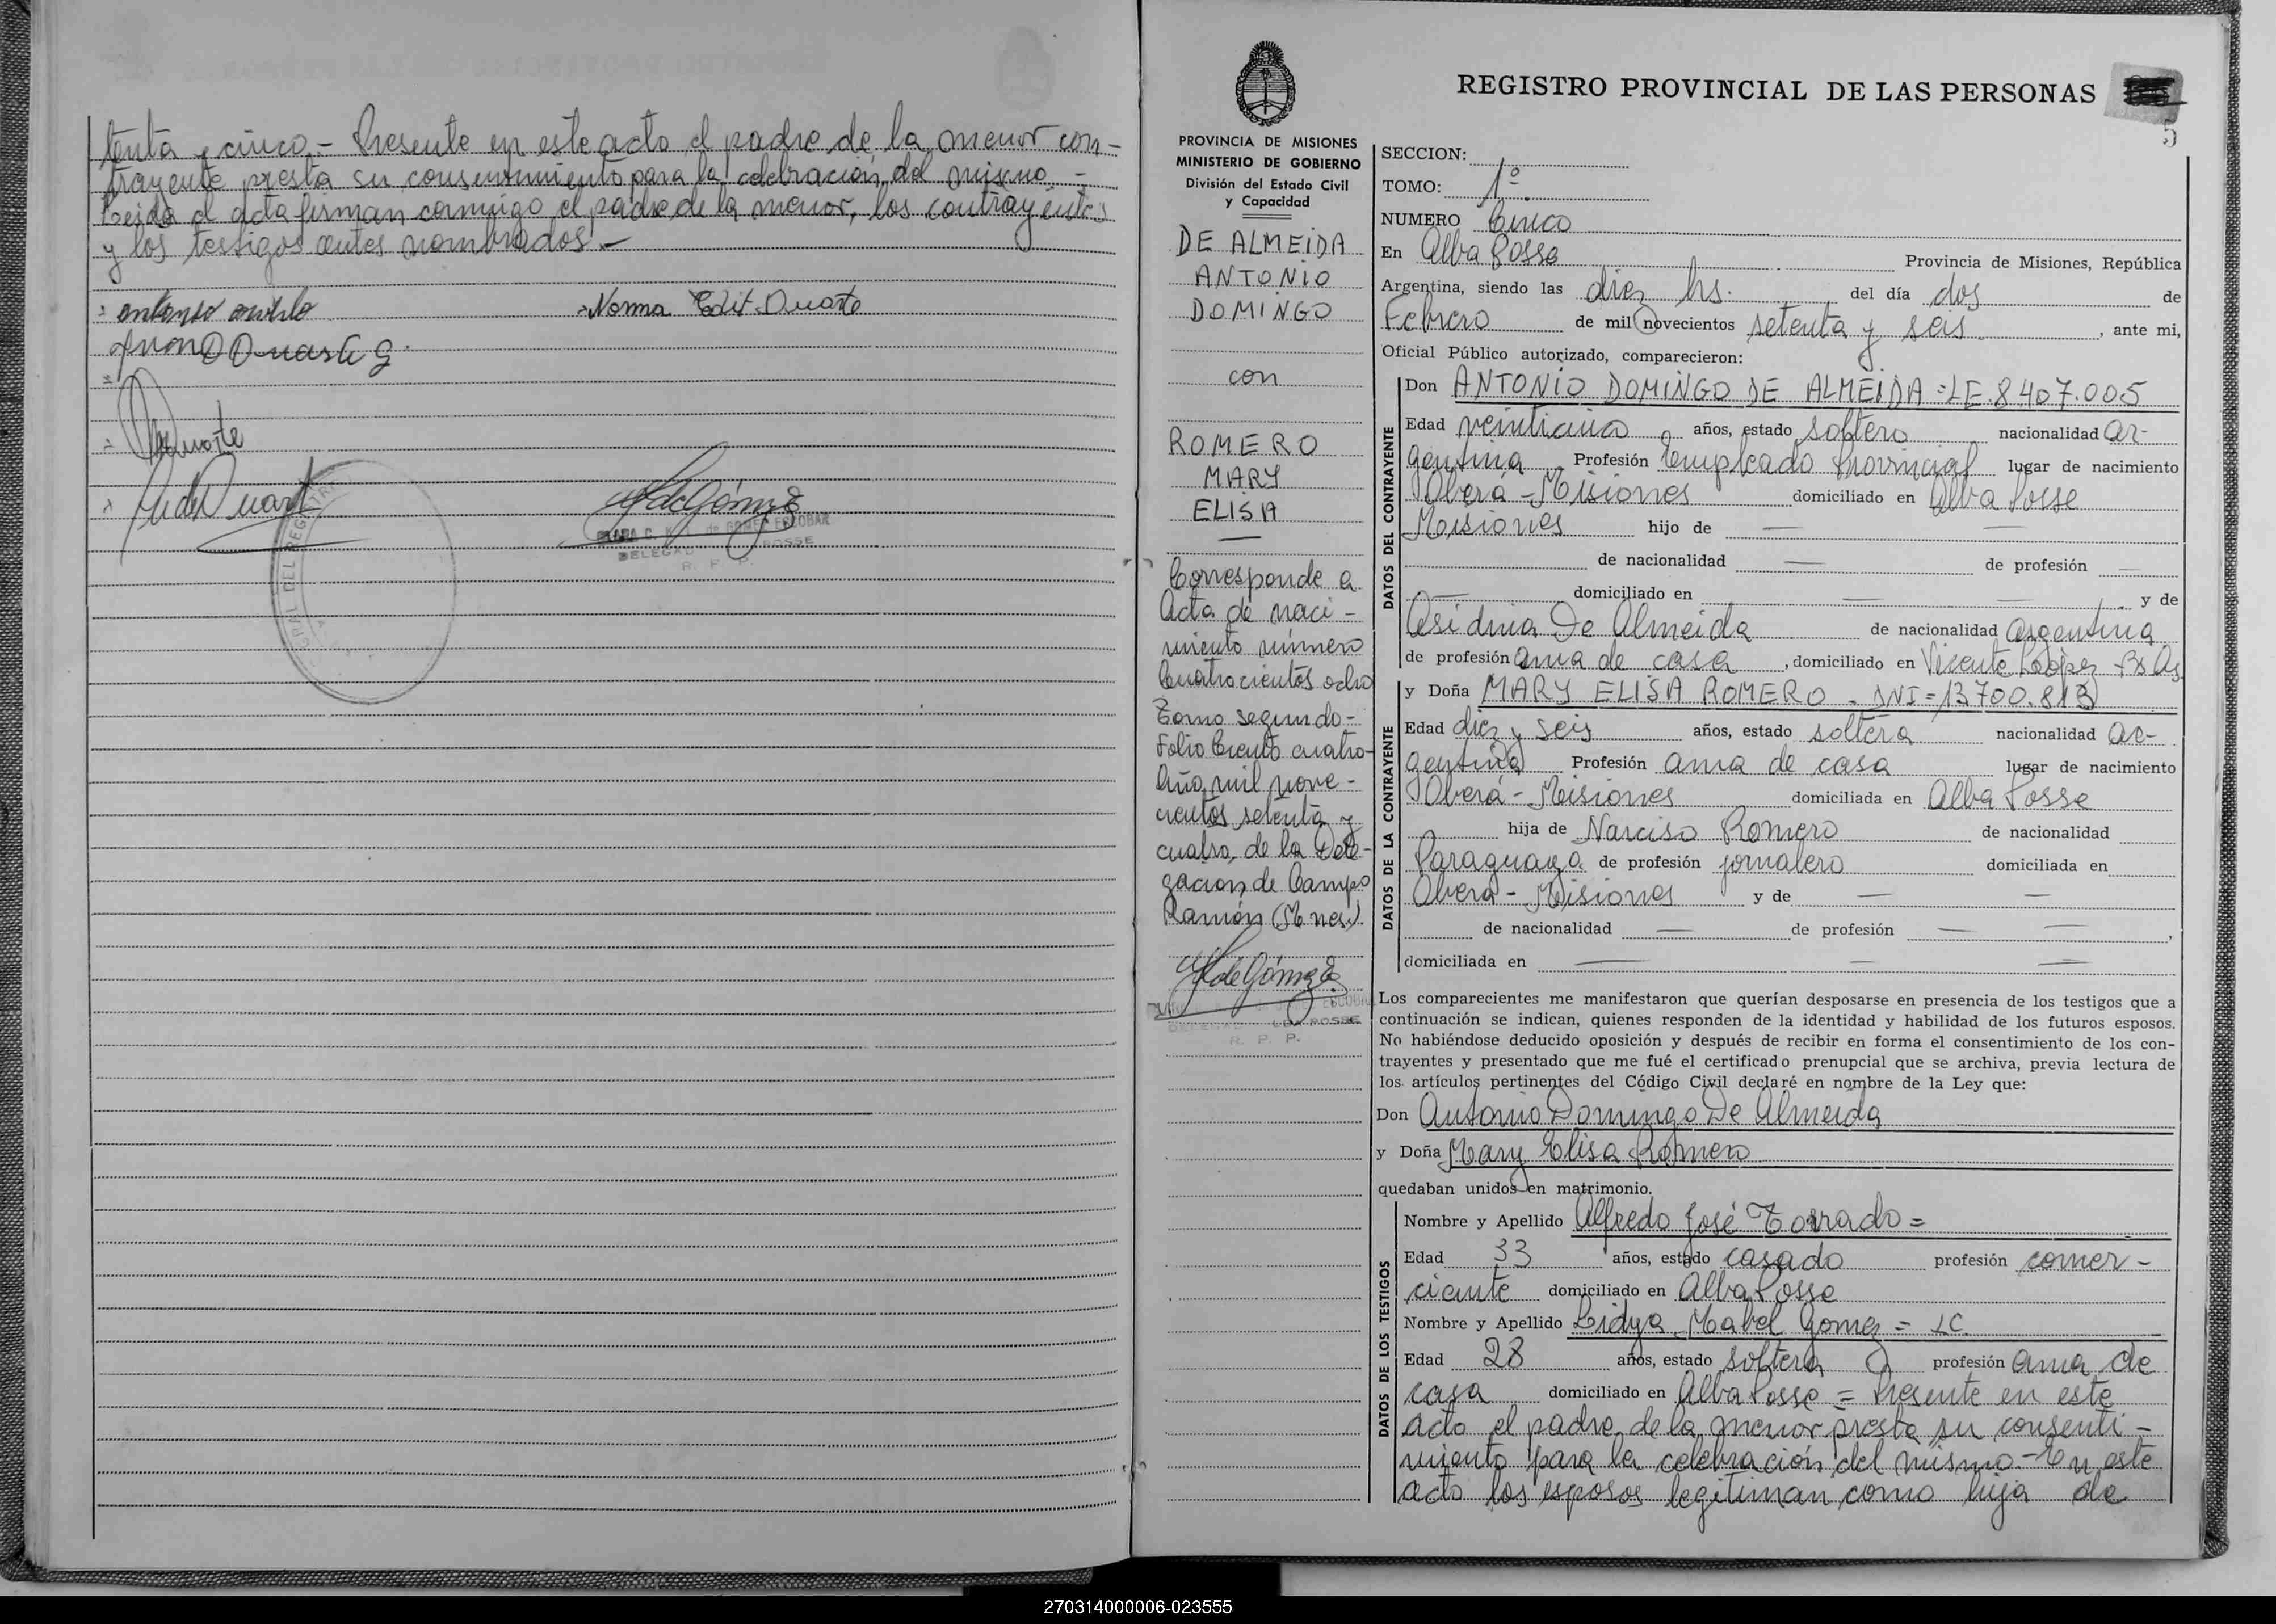 tenta y cinco.- Presente en este acto el padre de la menor con-
trayente presta su consentimiento para la celebracion del mismo.-
Leida el acta firman conmigo el padre de la menor, los contrayentes
y los testigos antes nombrados.-
Norma Edit Duarte
Duarte
REGISTRO PROVINCIAL DE LAS PERSONAS
5
PROVINCIA DE MISIONES
MINISTERIO DE GOBIERNO
División del Estado Civil
y Capacidad
DE ALMEIDA
ANTONIO
DOMINGO
con
ROMERO
MARY
ELISA
Corresponde a
Acta de naci-
miento número
Cuatrocientos ocho
Tomo segundo-
Folio Ciento cuatro-
Año mil nove-
cientos setenta y
cuatro, de la Dele-
gacion de Campo
Ramón (Mnes.)
SECCION:
TOMO: 1º
NUMERO Cinco
En Alba Posse Provincia de Misiones, República
Argentina, siendo las diez hs. del día dos de
Febrero de mil novecientos setenta y seis, ante mi,
Oficial Público autorizado, comparecieron:
DATOS DEL CONTRAYENTE
Don ANTONIO DOMINGO DE ALMEIDA =LE.8407.005
Edad veinticinco años, estado soltero nacionalidad ar-
gentina Profesión Empleado Provincial lugar de nacimiento
Oberá - Misiones domiciliado en Alba Posse
Misiones hijo de —
de nacionalidad — de profesión —
— domiciliado en — y de
De Almeida de nacionalidad argentina
de profesión ama de casa, domiciliado en Vicente López Bs As
DATOS DE LA CONTRAYENTE
y Doña MARY ELISA ROMERO - DNI=13700.813
Edad diez y seis años, estado soltera nacionalidad ar-
gentina Profesión ama de casa lugar de nacimiento
Oberá - Misiones domiciliada en Alba Posse
hija de Narciso Romero de nacionalidad
Paraguaya de profesión jornalero domiciliada en
Oberá - Misiones y de —
de nacionalidad — de profesión —,
domiciliada en —
Los comparecientes me manifestaron que querían desposarse en presencia de los testigos que a
continuación se indican, quienes responden de la identidad y habilidad de los futuros esposos.
No habiéndose deducido oposición y después de recibir en forma el consentimiento de los con-
trayentes y presentado que me fué el certificado prenupcial que se archiva, previa lectura de
los artículos pertinentes del Código Civil declaré en nombre de la Ley que:
Don Antonio Domingo De Almeida
y Doña Mary Elisa Romero
quedaban unidos en matrimonio.
DATOS DE LOS TESTIGOS
Nombre y Apellido Alfredo José Torrado =
Edad 33 años, estado casado profesión comer-
ciante domiciliado en Alba Posse
Nombre y Apellido Lidya Mabel Gomez = LC.
Edad 28 años, estado soltera profesión ama de
casa domiciliado en Alba Posse = Presente en este
acto el padre de la menor presta su consenti-
miento para la celebración del mismo.- En este
acto los esposos legitiman como hija de
270314000006-023555